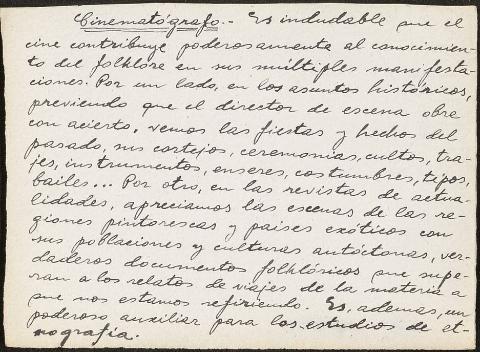 Cinematógrafo.- Es indudable que el
cine contribuye poderosamente al conocimien-
to del folklore en sus múltiples manifesta-
ciones. Por un lado, en los asuntos históricos,
previendo que el director de escena obre
con acierto, vemos las fiestas y hechos del
pasado, sus cortejos, ceremonias, cultos, tra-
jes, instrumentos, enseres, costumbres, tipos,
bailes... Por otro, en las revistas de actua-
lidades, apreciamos las escenas de las re-
giones pintorescas y paises exóticos con
sus poblaciones y culturas autóctonas, ver-
daderos documentos folklóricos que supe-
ran a los relatos de viajes de la materia a
que nos estamos refiriendo. Es, ademas, un
poderoso auxiliar para los estudios de et-
nografía.